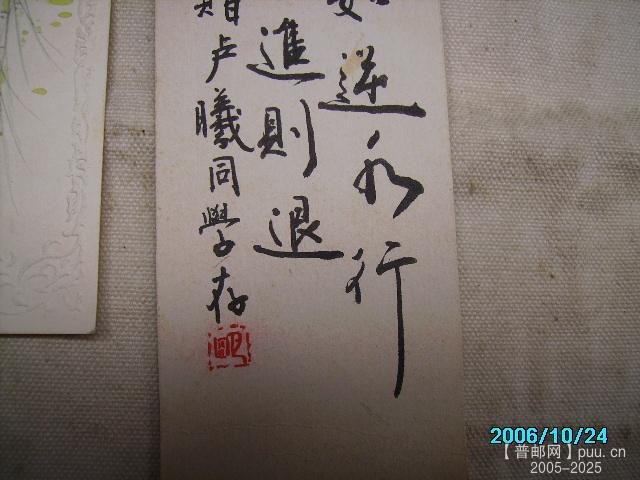 如逆水行
進則退
贈卢曦同學存
2006/10/24
【普邮网】puu.cn
2005-2025